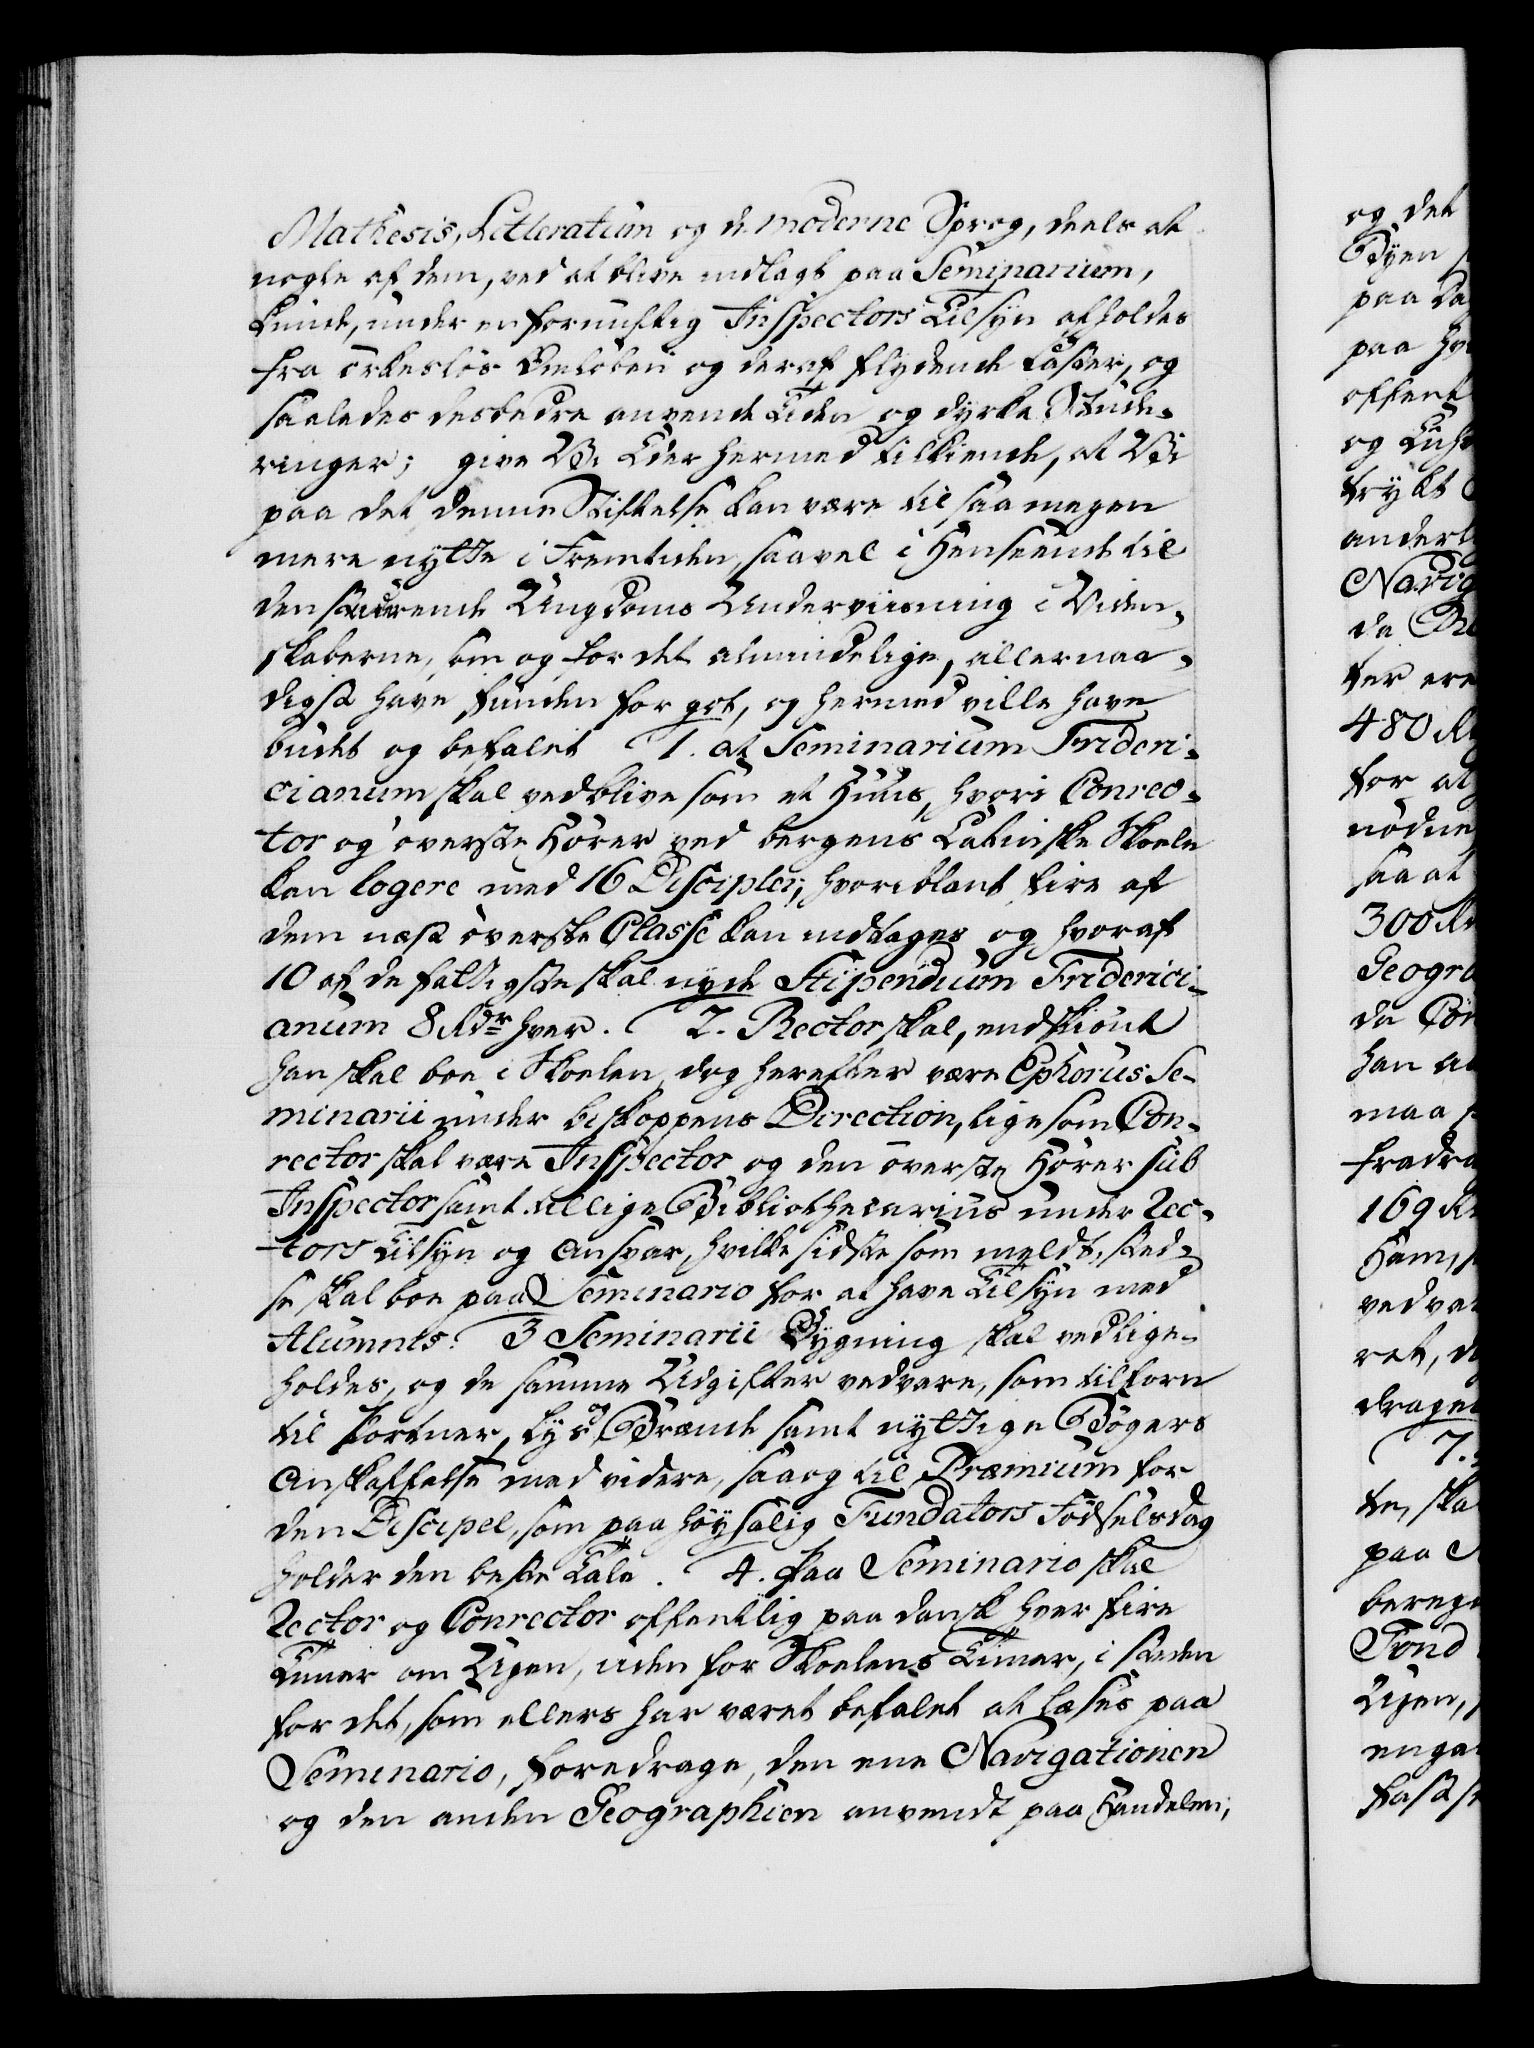 Mathesis, Litteratum og de moderne Sprog, deels at
nogle af dem, ved at blive indlagt paa Seminarium,
kunde, under en fornuftig Inspectors Tilsyn afholdes
fra örkeslös Omlöben og deraf flydende Laster, og
saaledes desbedre anvende Tiden og dyrke Stude-
ringer; give Vi Eder hermed tilkiende, at Vi
paa det denne Stiftelse kan være til saa megen
mere nytte i Fremtiden, saavel i Henseende til
den studerende Ungdoms Underviisning i Viden-
skaberne, som og for det almindelige, allernaa-
digst have funden for got, og hermed ville have
budet og befalet 1. at Seminarium Frideri-
cianum skal vedblive som et Huus, hvori Conrec-
tor og överste Hörer ved bergens Latinske Skoele
kan logere med 16 Discipler, hvoriblant fire af
dem næst överste Classe kan indtages og hvoraf
10 af de fattigste skal nyde Stipendium Friderici-
anum 8 Rdr hver. 2. Rector skal, endskiönt
han skal boe i Skoelen, dog herefter være Ephorus Se-
minarii under biskoppens Direction, ligesom Con-
rector skal være Inspector og den överste Hörer sub
Inspector samt tillige Bibliothecarius under Rec-
tors Tilsyn og Ansvar, hvilke sidste som meldt, sted-
se skal boe paa Seminario for at have Tilsyn med
Alumnis. 3 Seminarii Bygning skal vedlige-
holdes, og de samme Udgifter vedvare, som tilforn
til Portner, Lys og Brænde samt nyttige Bögers
Anskaffelse med videre, saa og til Præmium for
den Discipel, som paa höysalig Fundators Födselsdag
holder den beste Tale. 4. Paa Seminario skal
Rector og Conrector offentlig paa dansk hver fire
Timer om Ugen, uden for Skoelens Timer, i steden
for det, som ellers har været befalet at læses paa
Seminario, foredrage, den ene Navigationen
og den anden Geographien anvendt paa Handelen;
og det
paa
paa
og
trykt
Navig
da
480 R
for at
saa at
300 R
Geogra
da
han
maa
169 R
Ham,
7.
paa
Fond
Ugen,